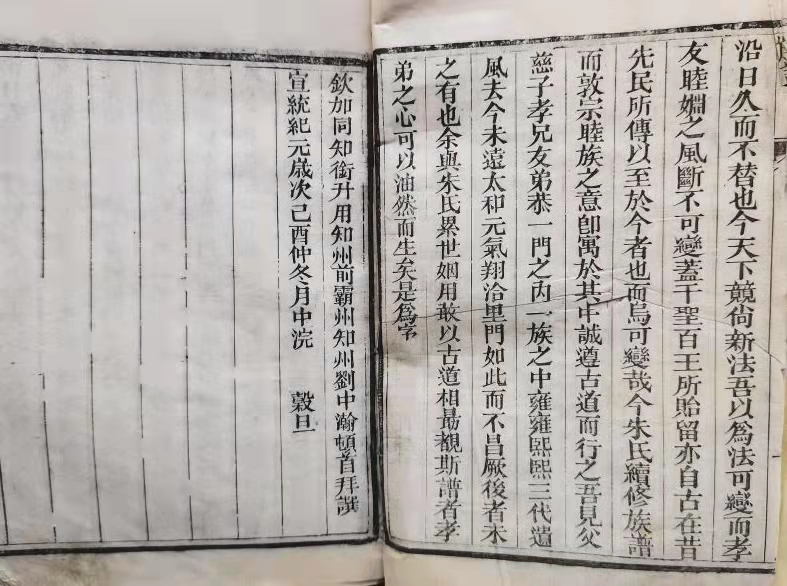 沿日久而不替也今天下競尙新法吾以爲法可變而孝
友睦婣之風斷不可變蓋千聖百王所貽留亦自古在昔
先民所傳以至於今者也而烏可變哉今朱氏續修族譜
而敦宗睦族之意卽寓於其中誠遵古道而行之吾見父
慈子孝兄友弟恭一門之內一族之中雍雍熙熙三代遺
風去今未遠太和元氣翔洽里門如此而不昌厥後者未
之有也余與朱氏累世姻用敢以古道相勗覩斯譜者孝
弟之心可以油然而生矣是爲序
欽加同知銜升用知州前霸州知州劉中瀚頓首拜譔
宣統紀元歲次己酉仲冬月中浣 穀旦